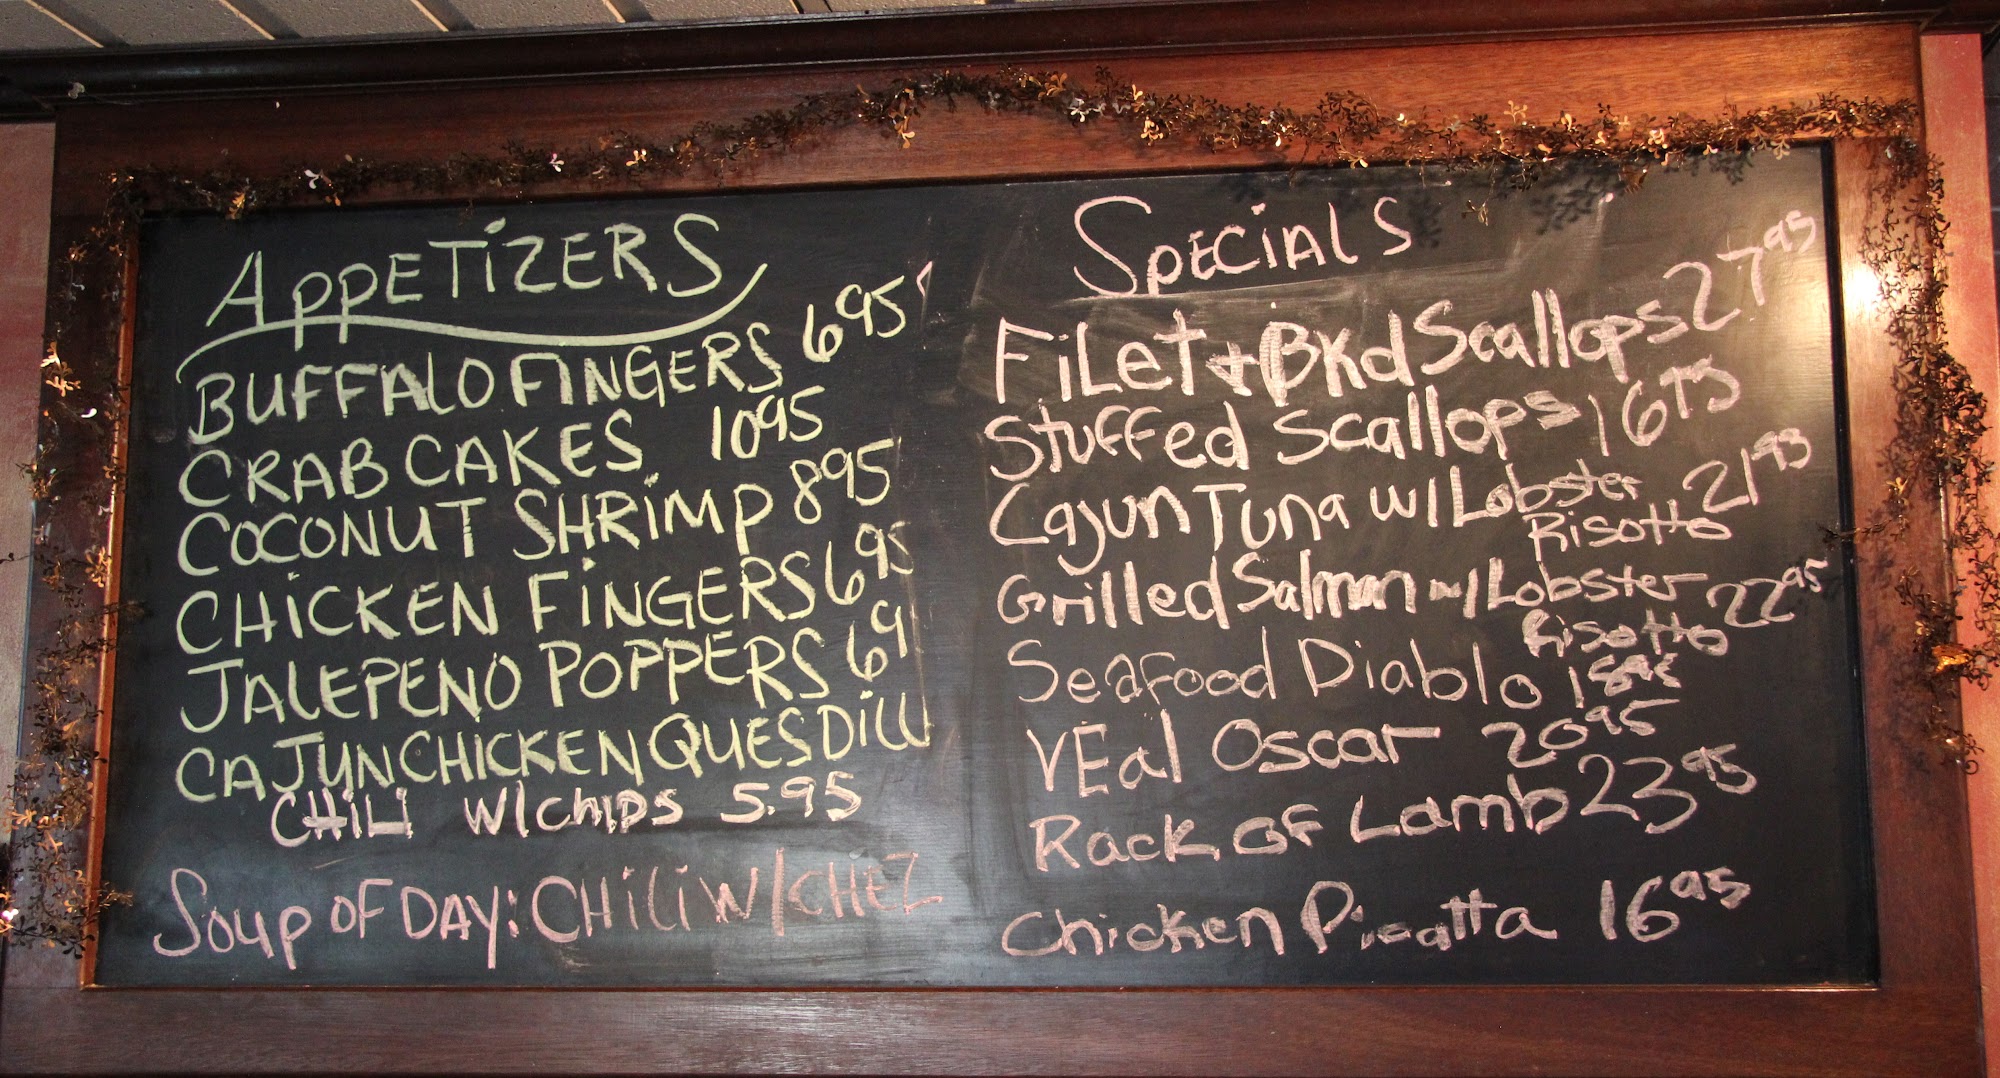 APPETIZERS
BUFFALO FINGERS 6 95
CRAB CAKES 10 95
COCONUT SHRIMP 8 95
CHICKEN FINGERS 6 95
JALEPENO POPPERS 6 9
CAJUN CHICKEN QUESDILL
CHILI W/CHIPS 5.95
Soup OF DAY: CHILI W/CHEZ
SPECIALS
FiLet + BKd Scallops 27 95
Stuffed Scallops 16 75
Cajun Tuna w/ Lobster Risotto 21 93
Grilled Salmon w/ Lobster Risotto 22 95
Seafood Diablo
VEal Oscar 20 95
Rack OF Lamb 23 95
Chicken Picatta 16 95